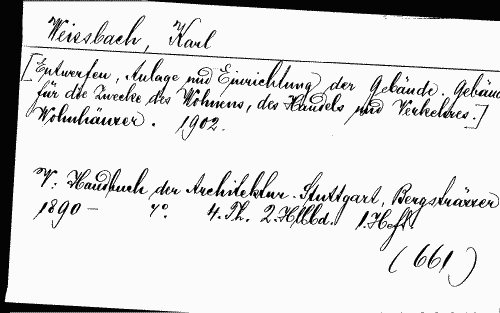 Weissbach, Karl
[Entwerfen, Anlage und Einrichtung der Gebäude. Gebäud
für die Zwecke des Wohnens, des Handels und Verkehres.]
Wohnhäuser. 1902.
V: Handbuch der Architektur. Stuttgart, Bergsträsser
1890- 4°. 4. Th. 2. Hlbbd. 1. Heft.
(661)